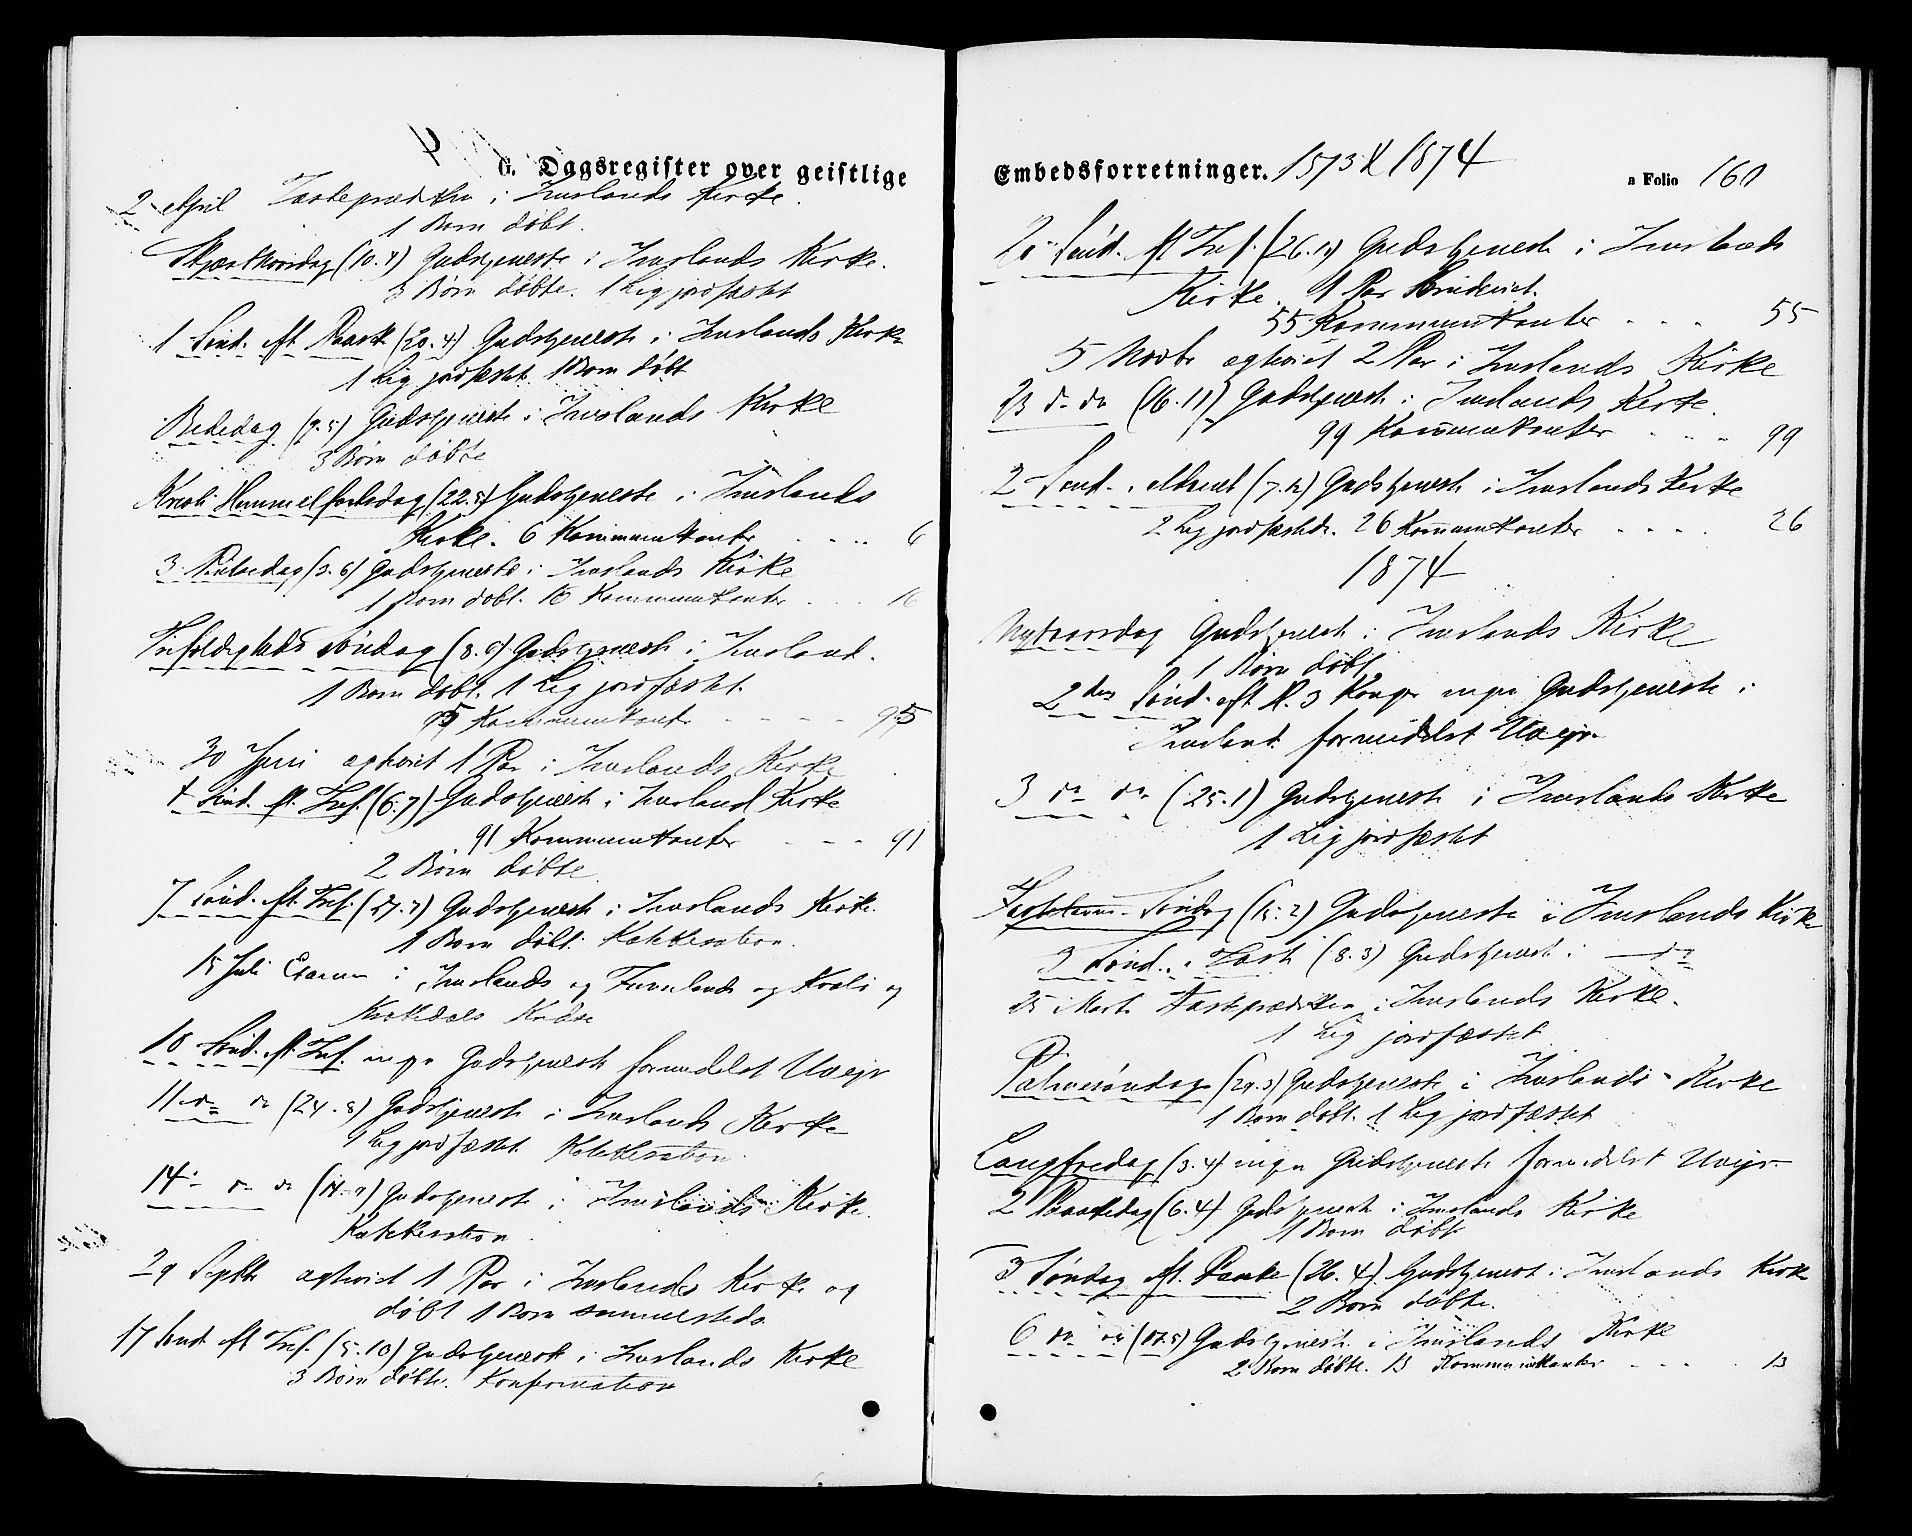 G. Dagsregister over geistlige
2 April Fasteprædiken i Iveslands Kirke.
1 Barn døbt.
Skjærthorsdag (10.4) Gudstjeneste i Iveslands Kirke.
3 Børn døbte. 1 Lig jordfæstet
1 Sønd. eft. Paask (20.4) Gudstjeneste i Iveslands Kirke
1 Lig jordfæstet 1 Barn døbt
Bededag (9.5) Gudstjeneste i Iveslands Kirke
3 Børn døbte
Kristi Himmelfartsdag (22.5) Gudstjeneste i Iveslands
Kirke. 6 Kommunikanter . . . . 6
3 Pintsedag (3.6) Gudstjeneste i Iveslands Kirke
1 Barn døbt. 16 Kommunikanter . . . 16
Trefoldigheds Søndag (8.6) Gudstjeneste i Ivesland.
1 Barn døbt. 1 Lig jordfæstet.
95 Kommunikanter - - - - 95
30 Juni egteviet 1 Par i Iveslands Kirke
4 Sønd. eft. Tref. (6.7) Gudstjeneste i Ivesland Kirke
91 Kommunikanter - - - 91
2 Børn døbte.
7 Sønd. eft. Tref. (27.7) Gudstjeneste i Iveslands Kirke.
1 Barn døbt. Katekisation.
15 Juli Examen i Iveslands og
Kreds
10 Sønd. eft. Tref. ingen Gudstjeneste formedelst Uveir
11 do do (24.8) Gudstjeneste i Iveslands Kirke
1 Lig jordfæstet Katekisation.
14 do do (14.9) Gudstjeneste i Iveslands Kirke.
Katekisation.
29 Septbr egteviet 1 Par i Iveslands Kirke og
døbt 1 Barn sammesteds.
17 Sønd. eft Tref. (5.10) Gudstjeneste i Iveslands Kirke
3 Børn døbte. Konfirmation
Embedsforretninger. 1873 & 1874
a Folio 160
20 Sønd. eft Tref. (26.10) Gudstjeneste i Iveslands
Kirke. 1 Par
55 Kommunikanter . . . 55
5 Novbr egteviet 2 Par i Iveslands Kirke
23 do do (16.11) Gudstjeneste i Iveslands Kirke.
99 Kommunikanter . . . 99
2 Sønd. i Advent (7.12) Gudstjeneste i Iveslands Kirke
2 Lig jordfæstede. 26 Kommunikanter . . . . 26
1874
Nytaarsdag Gudstjeneste i Iveslands Kirke
1 Barn døbt
2den Sønd. eft H. 3 Konger ingen Gudstjeneste i
Ivesland formedelst Uveir
3 do do (25.1) Gudstjeneste i Iveslands Kirke
1 Lig jordfæstet
Fastelavns-Søndag (15.2) Gudstjeneste i Iveslands Kirke
3 Sønd. i Fast (8.3) Gudstjeneste i do
25 Marts Fasteprædiken i Iveslands Kirke.
1 Lig jordfæstet
Palmesøndag (29.3) Gudstjeneste i Iveslands Kirke
1 Barn døbt. 1 Lig jordfæstet
Langfredag (3.4) ingen Gudstjeneste formedelst Uveir.
2 Paaskedag (6.4) Gudstjeneste i Iveslands Kirke
1 Barn døbt
3 Søndag eft. Paaske (26.4) Gudstjeneste i Iveslands Kirke
2 Børn døbte.
6 do do (17.5) Gudstjeneste i Iveslands Kirke
2 Børn døbte. 13 Kommunikanter - - - . 13